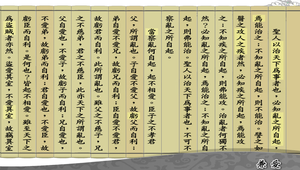 聖人以治天下為事者也，必知亂之所自起，
焉能治之；不知亂之所自起，則不能治。譬之如
醫之攻人之疾者然：必知疾之所自起，焉能攻
之；不知疾之所自起，則弗能攻。治亂者何獨不
然？必知亂之所自起，焉能治之；不知亂之所自
起，則弗能治。聖人以治天下為事者也，不可不
察亂之所自起。
當察亂何自起？起不相愛。臣子之不孝君
父，所謂亂也。子自愛不愛父，故虧父而自利；
弟自愛不愛兄，故虧兄而自利；臣自愛不愛君，
故虧君而自利，此所謂亂也。雖父之不慈子，兄
之不慈弟，君之不慈臣，此亦天下之所謂亂也。
父自愛也，不愛子，故虧子而自利；兄自愛也，
不愛弟，故虧弟而自利；君自愛也，不愛臣，故虧
臣而自利。是何也？皆起不相愛。雖至天下之
為盜賊者亦然，盜愛其室，不愛異室，故竊異室
兼愛